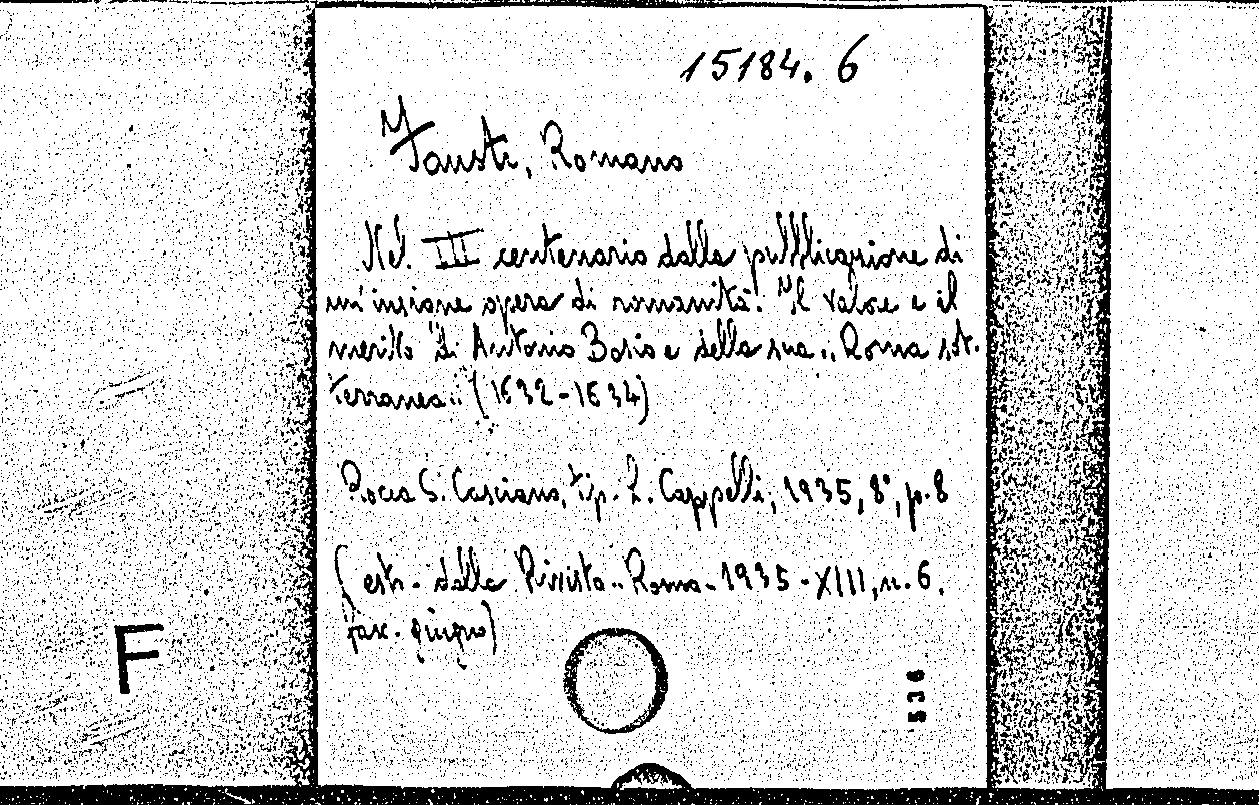 15184. 6
Fausti, Romano
Nel III centenario dalla pubblicazione di
un'insigne opera di romanità. Il valore e il
merito di Antonio Bosio e della sua „Roma sot-
terranea„ (1632-1634)
Rocca S. Casciano, tip. L. Cappelli, 1935, 8°, p. 8
(estr. dalla Rivista „Roma„ 1935-XIII, n. 6.
fasc. giugno)
F
536